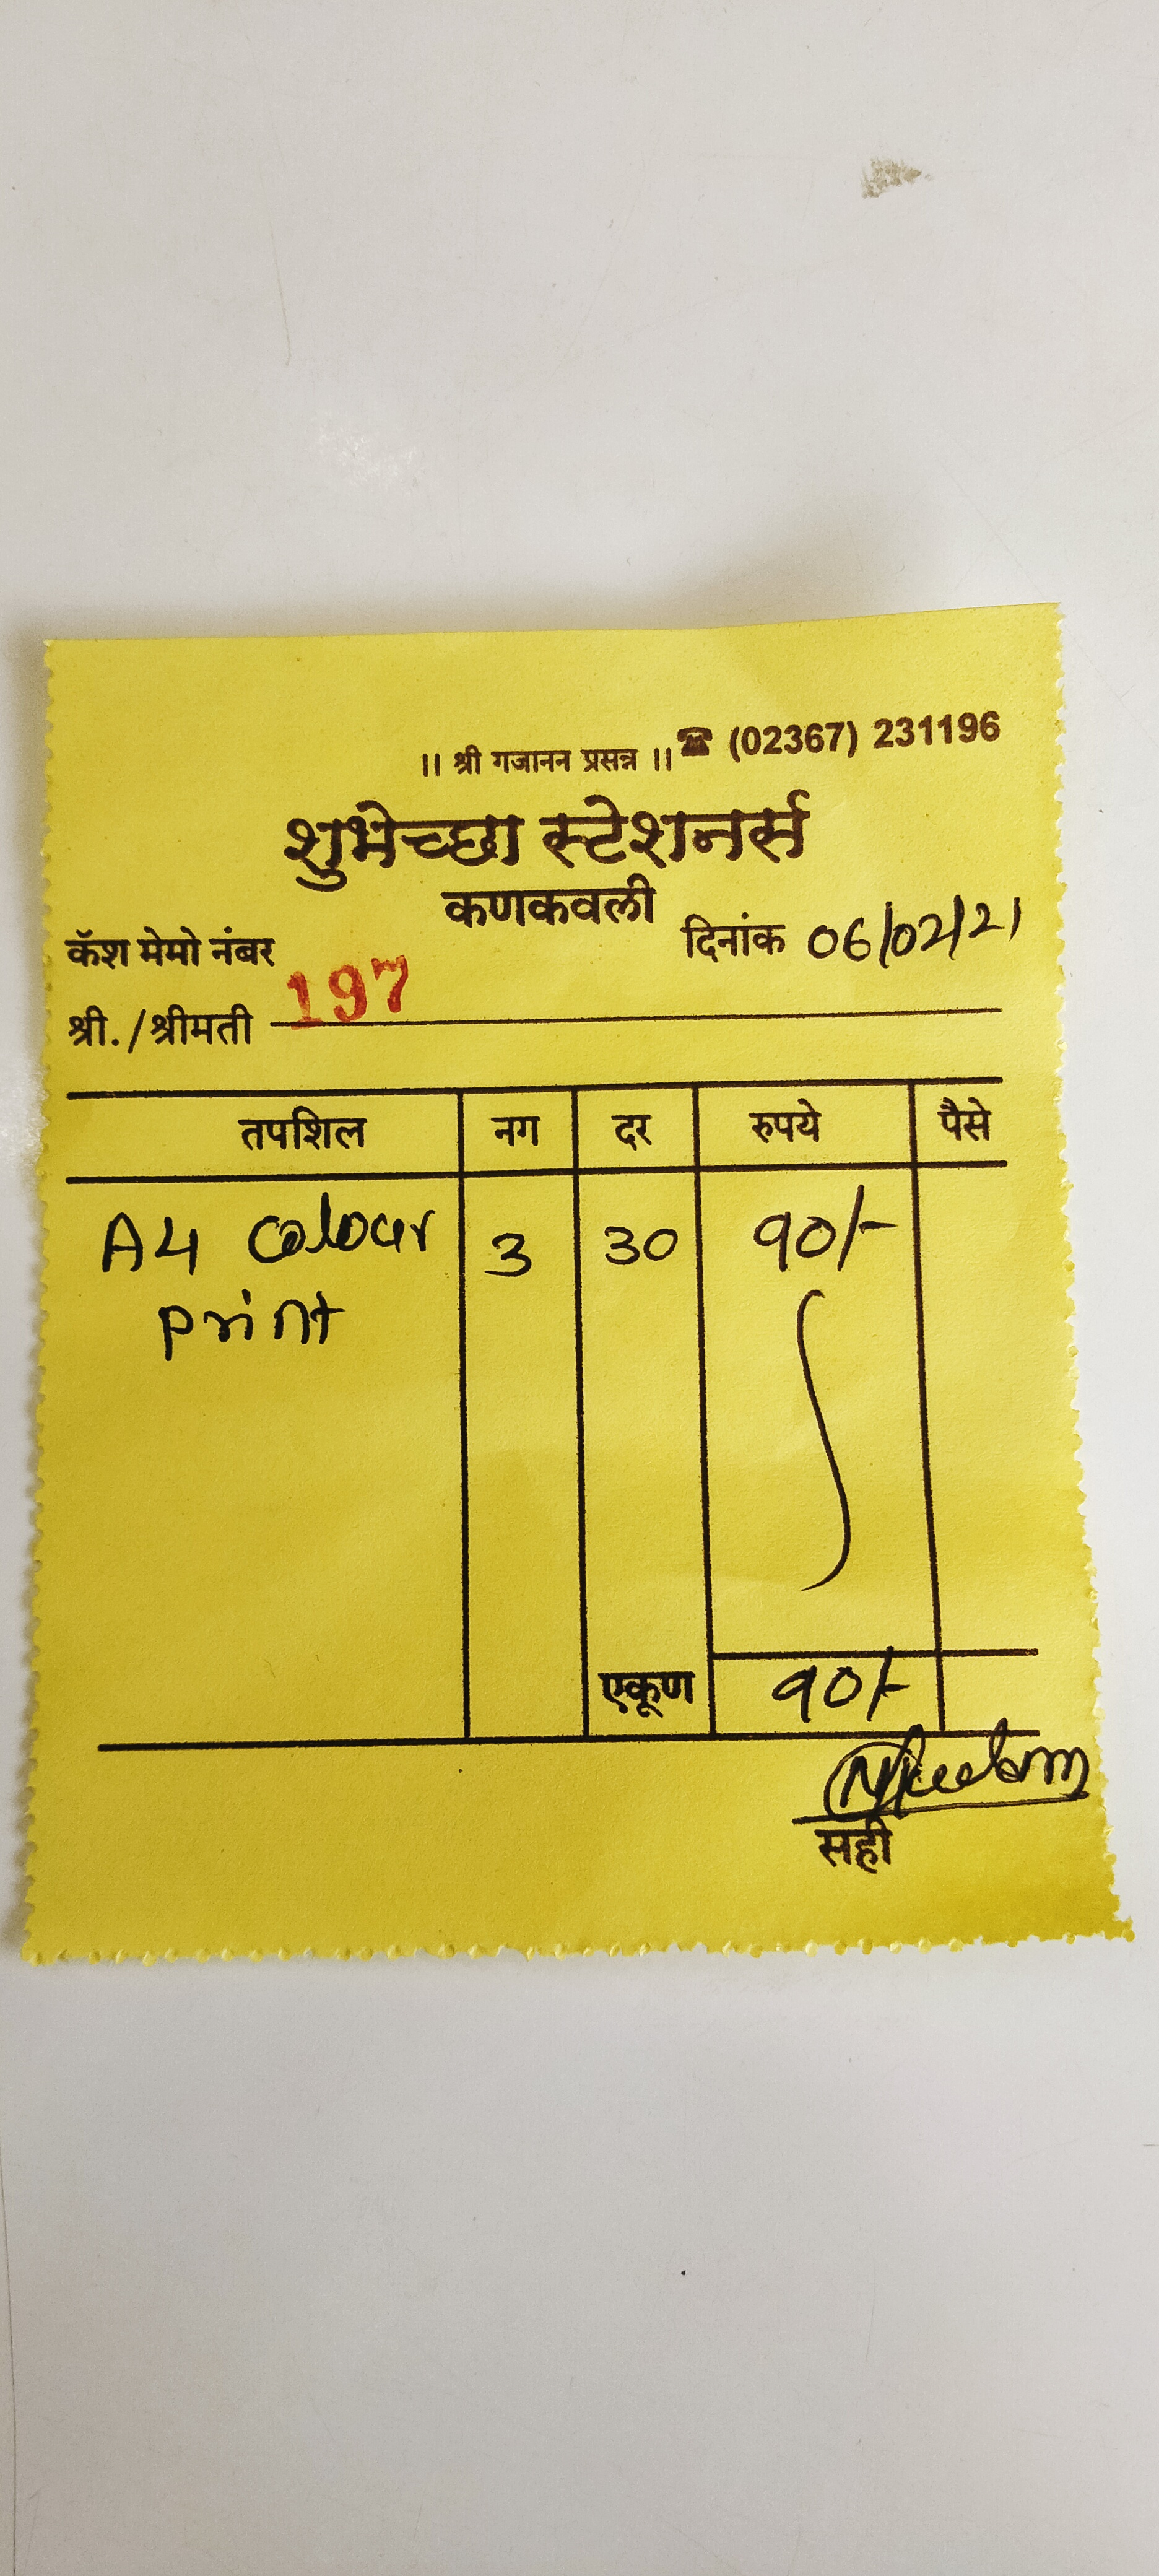 ।। श्री गजानन प्रसन्न ।। ☎ (02367) 231196
शुभेच्छा स्टेशनर्स
कणकवली
कॅश मेमो नंबर 197 दिनांक 06/02/21
श्री./श्रीमती
तपशिल नग दर रुपये पैसे
A4 colour 3 30 90/-
print
एकूण 90/-
सही